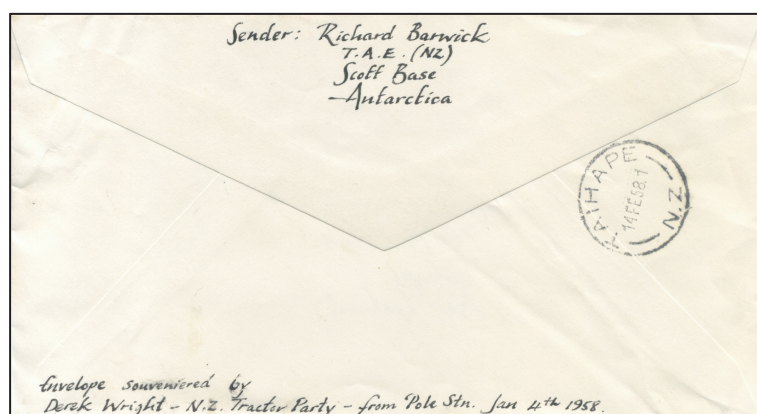 Sender: Richard Barwick
T.A.E. (NZ)
Scott Base
—Antarctica
TAIHAPE N.Z
14 FE 58.1
Envelope souveniered by
Derek Wright - N.Z. Tractor Party - from Pole Stn. Jan 4th 1958.